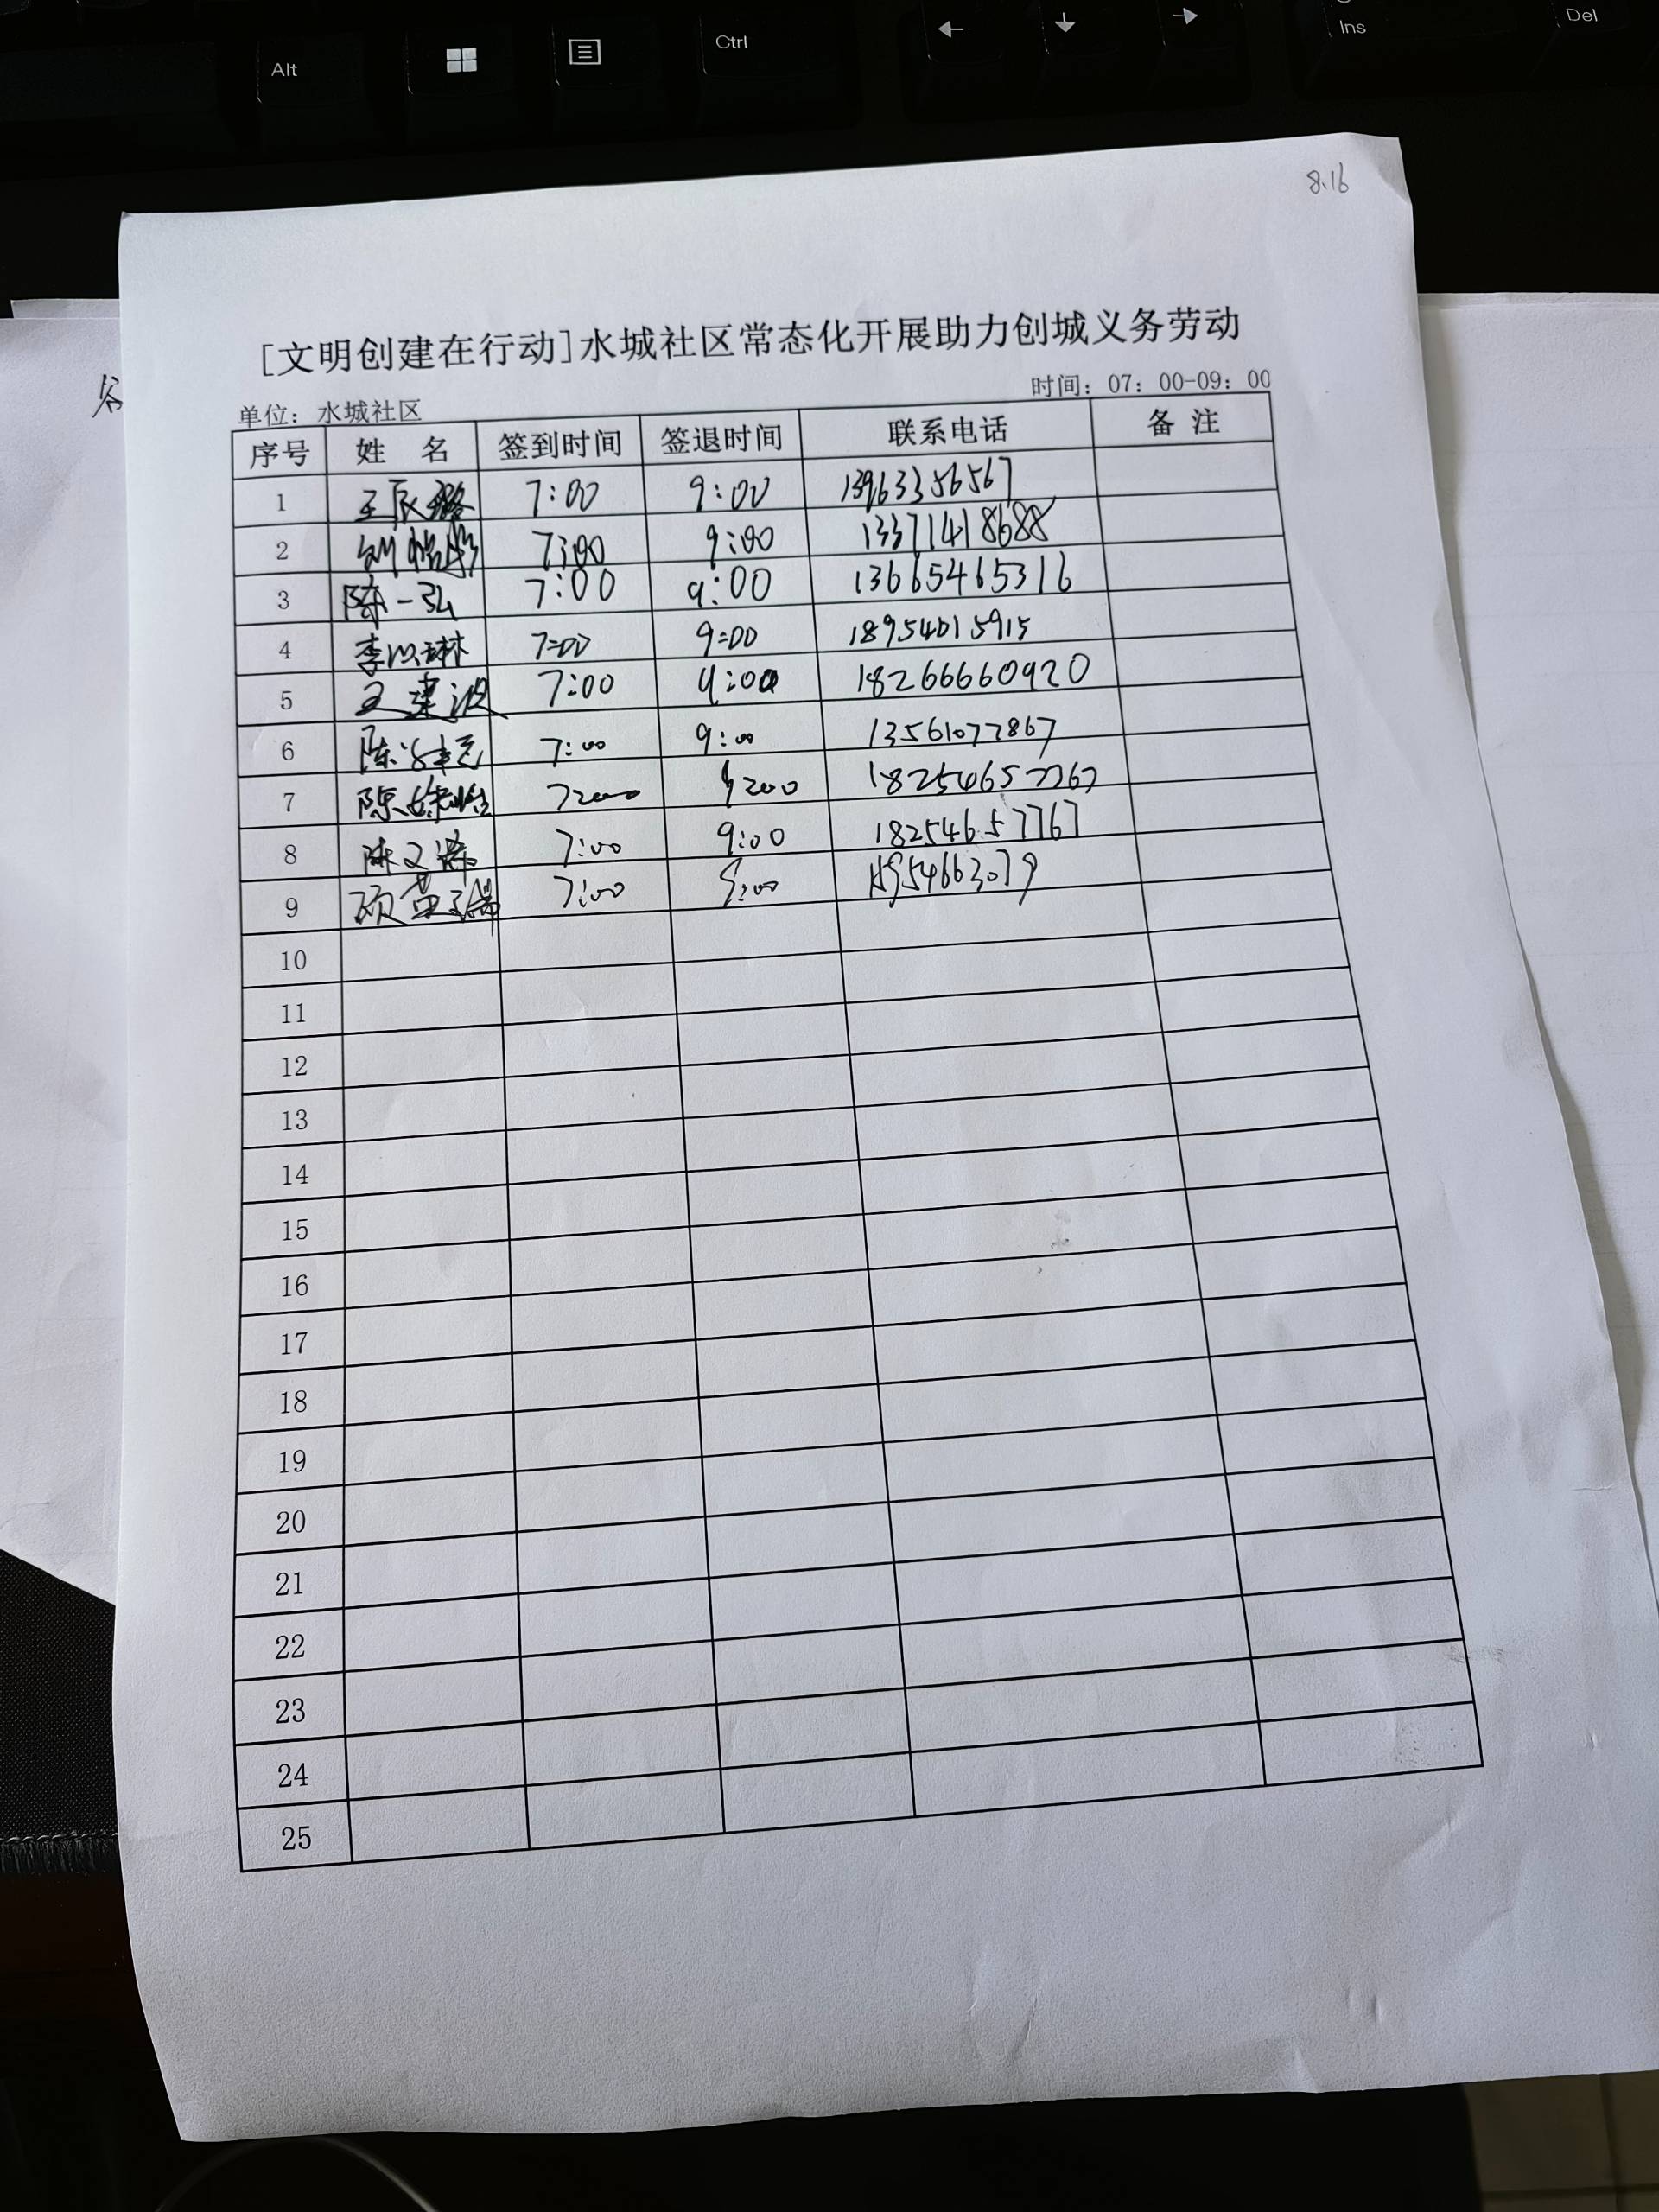 Alt
Ctrl
Ins
Del
8.16
谷
[文明创建在行动]水城社区常态化开展助力创城义务劳动
单位：水城社区 时间：07：00-09：00
序号 姓 名 签到时间 签退时间 联系电话 备 注
1 7:00 9:00 13963356567
2 7:00 9:00 13371418688
3 陈一弘 7:00 9:00 13665465316
4 7:00 9:00 18954615915
5 王建波 7:00 9:00 18266660920
6 陈 7:00 9:00 13561077867
7 陈 7:00 9:00 18254657767
8 陈 7:00 9:00 18254657767
9 7:00 9:00
10
11
12
13
14
15
16
17
18
19
20
21
22
23
24
25